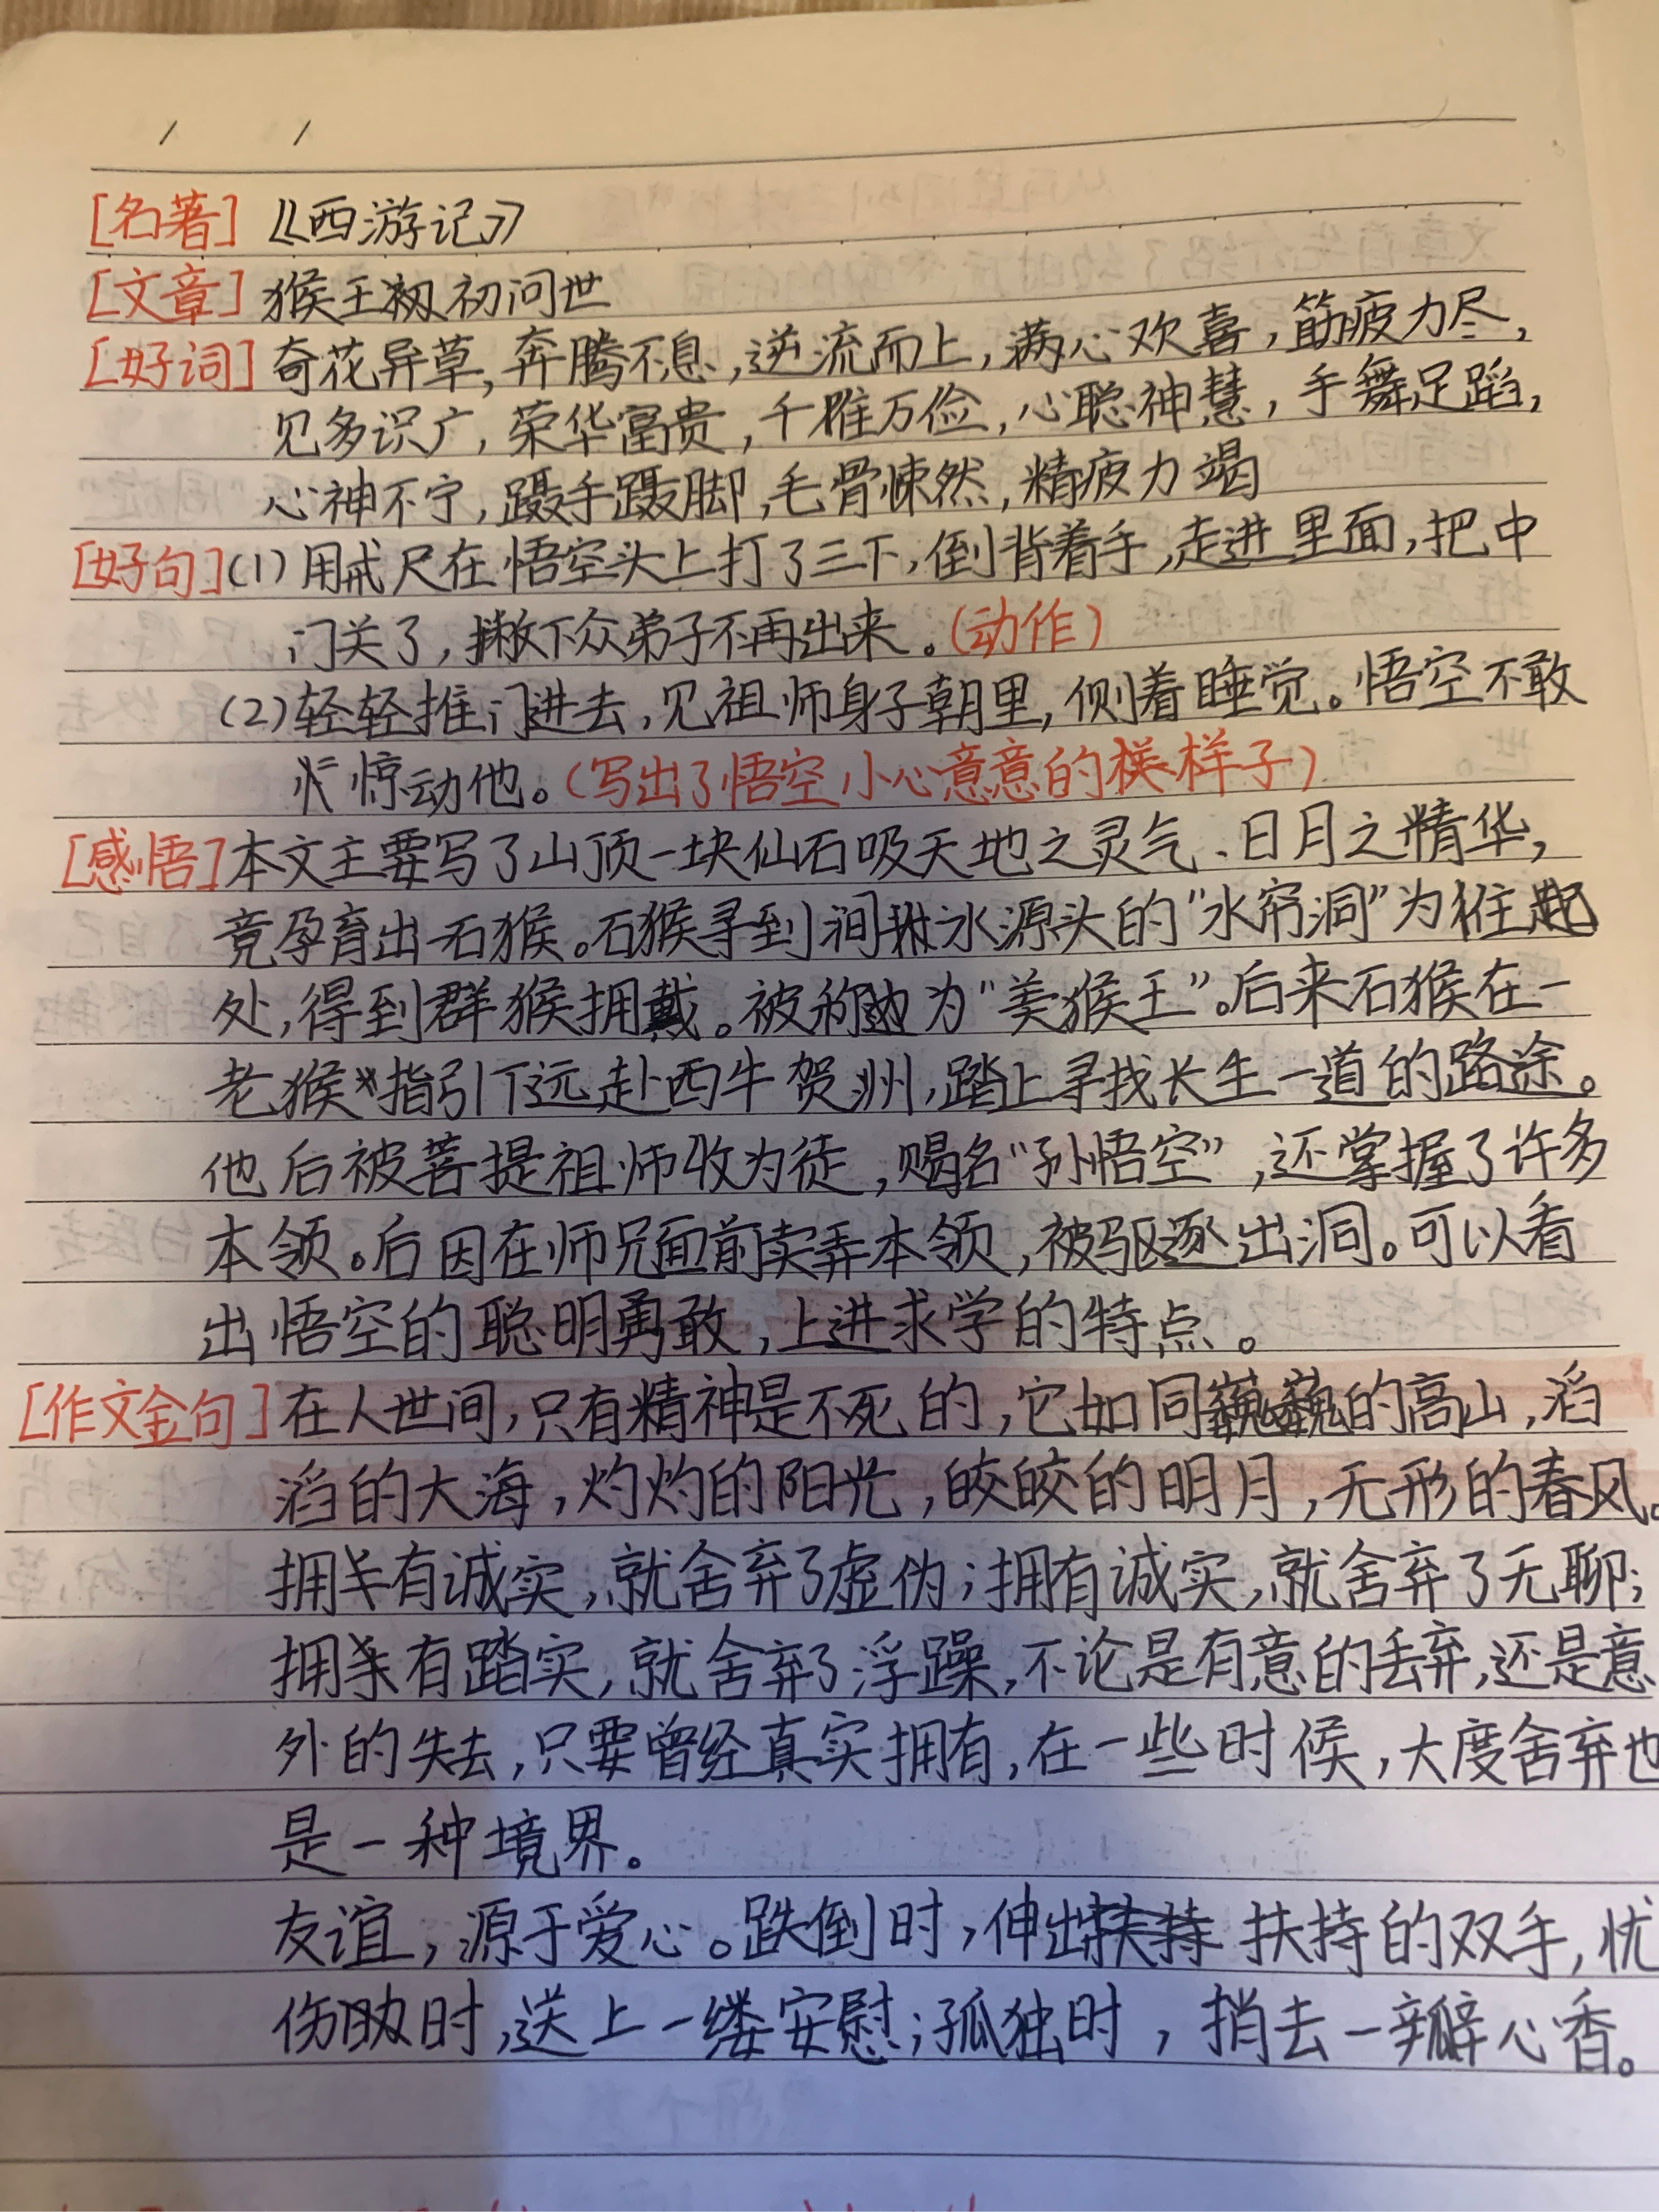 [名著]《西游记》
[文章] 猴王初问世
[好词] 奇花异草,奔腾不息,逆流而上,满心欢喜,筋疲力尽,
见多识广,荣华富贵,千难万险,心聪神慧,手舞足蹈,
心神不宁,蹑手蹑脚,毛骨悚然,精疲力竭
[好句](1)用戒尺在悟空头上打了三下,倒背着手,走进里面,把中
门关了,撇下众弟子不再出来。(动作)
(2)轻轻推门进去,见祖师身子朝里,侧着睡觉。悟空不敢
惊动他。(写出了悟空小心意意的样子)
[感悟]本文主要写了山顶一块仙石吸天地之灵气、日月之精华,
竟孕育出一石猴。石猴寻到涧水源头的“水帘洞”为住
处,得到群猴拥戴。被称为“美猴王”。后来石猴在一
老猴指引下远赴西牛贺洲,踏上寻找长生一道的路途。
他后被菩提祖师收为徒,赐名“孙悟空”,还掌握了许多
本领。后因在师兄面前卖弄本领,被驱逐出洞。可以看
出悟空的聪明勇敢,上进求学的特点。
[作文金句]在人世间,只有精神是不死的,它如同巍巍的高山,滔
滔的大海,灼灼的阳光,皎皎的明月,无形的春风。
拥有诚实,就舍弃了虚伪;拥有诚实,就舍弃了无聊;
拥有踏实,就舍弃了浮躁,不论是有意的丢弃,还是意
外的失去,只要曾经真实拥有,在一些时候,大度舍弃也
是一种境界。
友谊,源于爱心。跌倒时,伸出扶持的双手,忧
伤时,送上一缕安慰;孤独时,捎去一瓣心香。